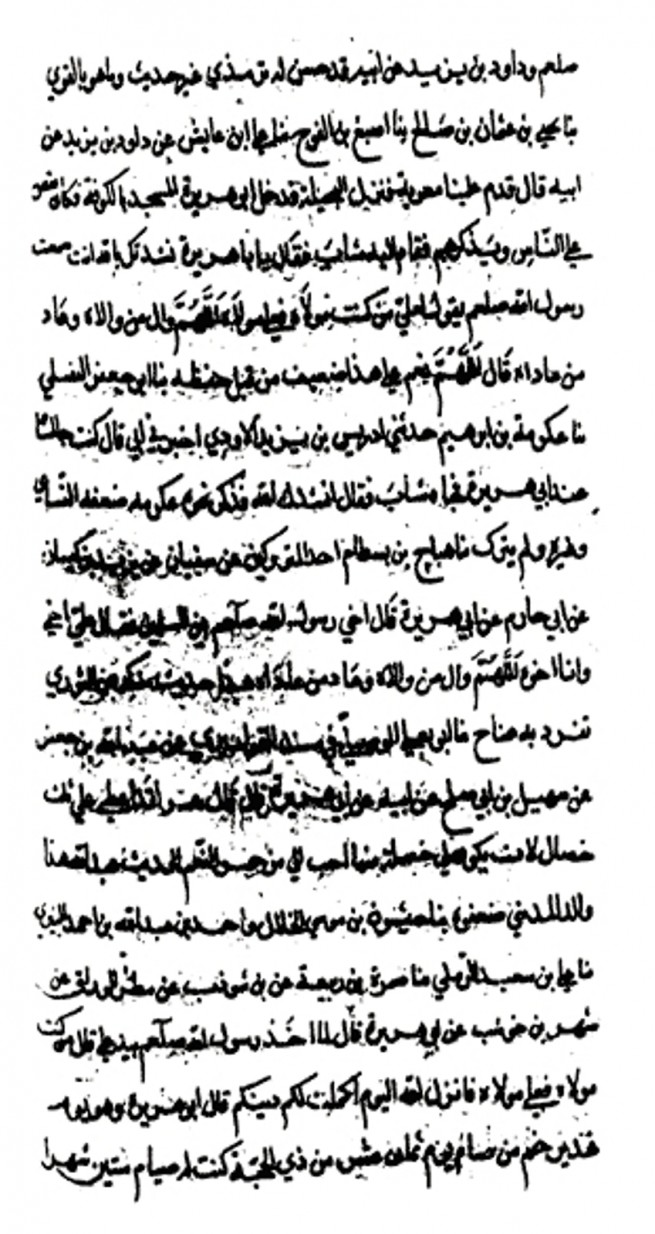 صلعم وداود بن يزيد عن ابيه قد حسن له ت مذي غير حديث وما هو بالقوي
نا يحيى بن عثمان بن صالح نا اصبغ بن الفرج نا علي ابن عابس عن داود بن يزيد عن
ابيه قال قدم علينا معوية فنزل النخيلة فدخل ابو هريرة المسجد بالكوفة فكان يقص
على النّاس ويذكرهم فقام اليه شابّ فقال يا با هريرة نشدتك بالله انت سمعت
رسول الله صلعم يقول لعلي من كنت مولاه فعلي مولاه اللَّهُمَّ وال من والاه وعاد
من عاداه قال اللَّهُمَّ نعم علي هذا ضعيف من قبل حفظه نا ابو جعفر النفيلي
نا عكرمة بن ابراهيم حدثني ادريس بن يزيد الاودي اخبرني ابي قال كنت جالسًا
عند ابي هريرة فجا شابّ فقال انشدك الله فذكر نحوه عكرمه ضعفه النّسائي
وغيره ولم يترك نا هياج بن بسطام عن سفيان عن يزيد بن كيسان
عن ابي حازم عن ابي هريرة قال اخي رسول الله صلعم بين فقال علي اخي
وانا اخوه اللَّهُمَّ وال من والاه وعاد من عاداه حديث منكر عن الثوري
تفرد به هياج نا ابو يعلى الموصلي نا عن عبد الله بن جعفر
عن سهيل بن ابي صالح عن ابيه عن ابي هريرة قال قال عمر علي ثلث
خصال لان يكون لي خصلة منها احب الي من حمر النّعم الحديث عبد الله هذا
والد المديني ضعفوه نا حبشون بن موسى الخلال واحمد بن عبد الله بن احمد
نا علي بن سعيد الرملي نا ضمرة بن ربيعة عن بن شوذب عن مطر الوراق عن
شهر بن حوشب عن ابي هريرة قال لما اخذ رسول الله صلعم بيد علي قال من كنت
مولاه فعلي مولاه فانزل الله اليوم اكملت لكم دينكم قال ابو هريرة وهو يوم
غدير خم من صام يوم ثمان عشر من ذي الحجّة كتب له صيام ستين شهرا